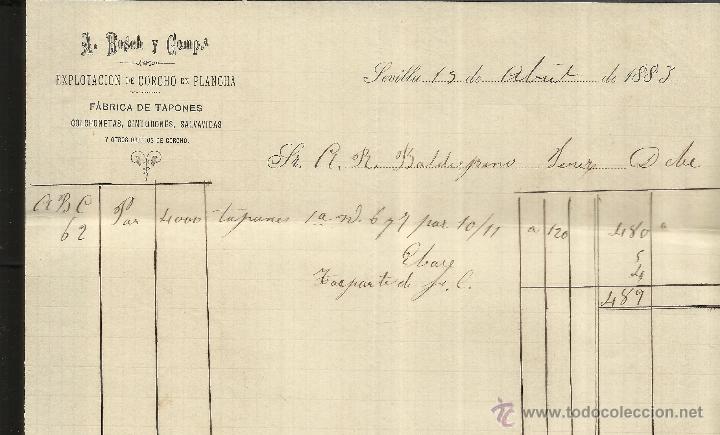 A. Bosch y Comp.a
EXPLOTACION DE CORCHO EN PLANCHA
FÁBRICA DE TAPONES
COLCHONETAS, CINTURONES, SALVAVIDAS
Y OTROS OBJETOS DE CORCHO.
Sevilla 13 de Abril de 1883
Sr. A. R. Baldespino Jerez Debe
A B C Por 4000 tapones 1a nº. 6 y 7 por 10/11 a 120 480 "
62
5
4
489
todocoleccion
www.todocoleccion.net